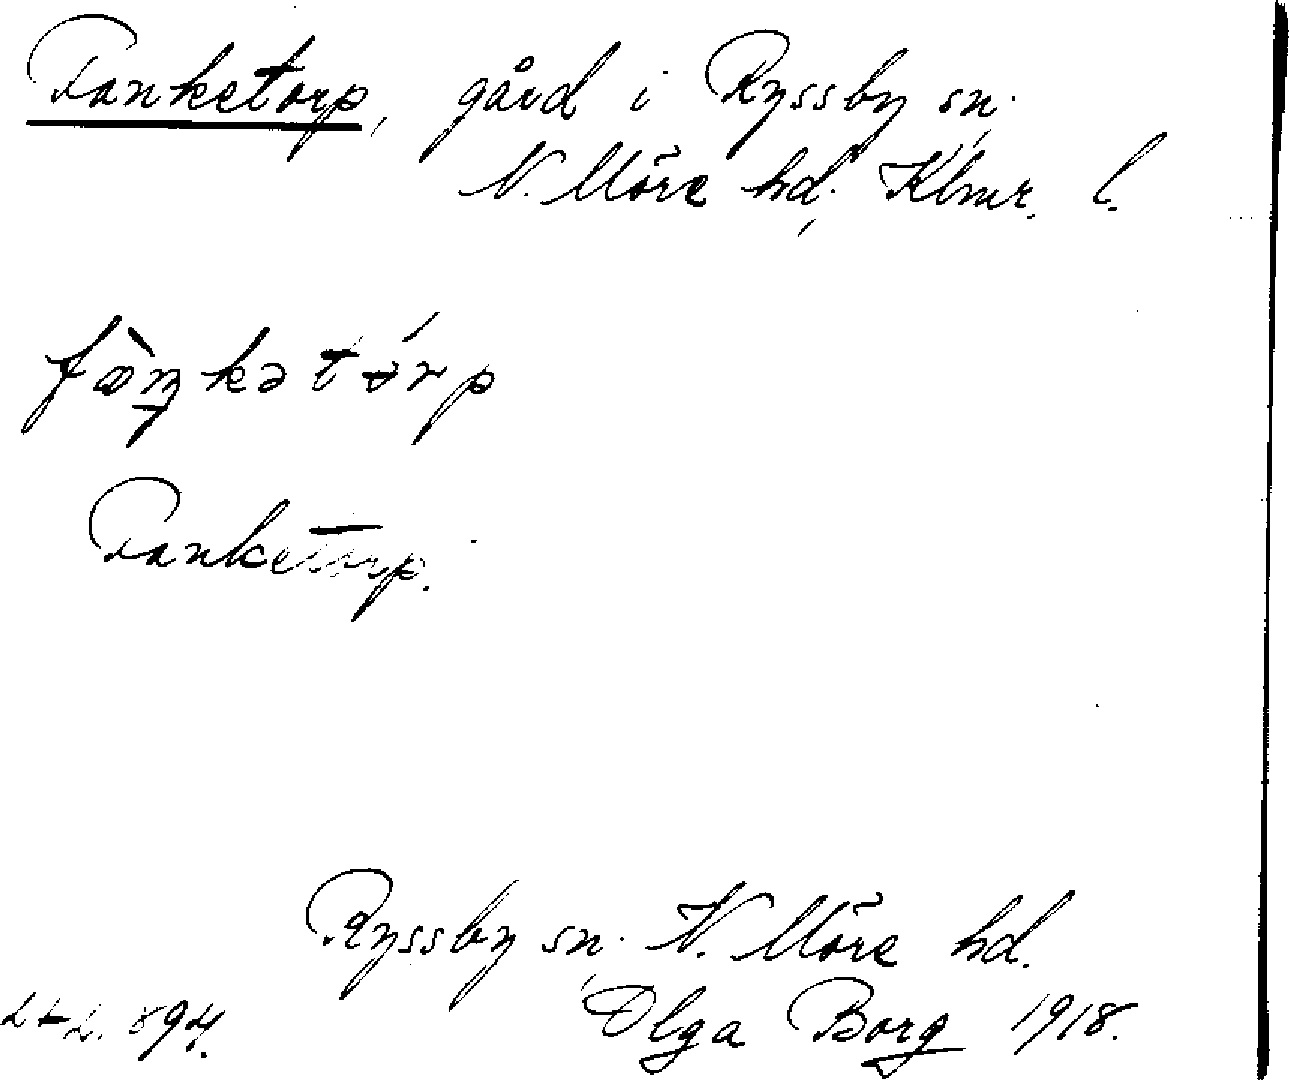 Fanketorp, gård i Ryssby sn.
N. Möre hd. Klmr. l.
fàŋkətórp
Fanketorp.
Ryssby sn. N. Möre hd.
Olga Borg 1918.